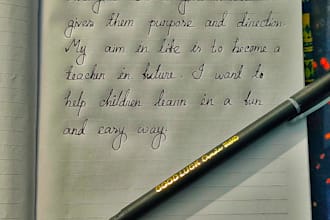 gives them purpose and direction.
My aim in life is to become a
teacher in future. I want to
help children learn in a fun
and easy way.